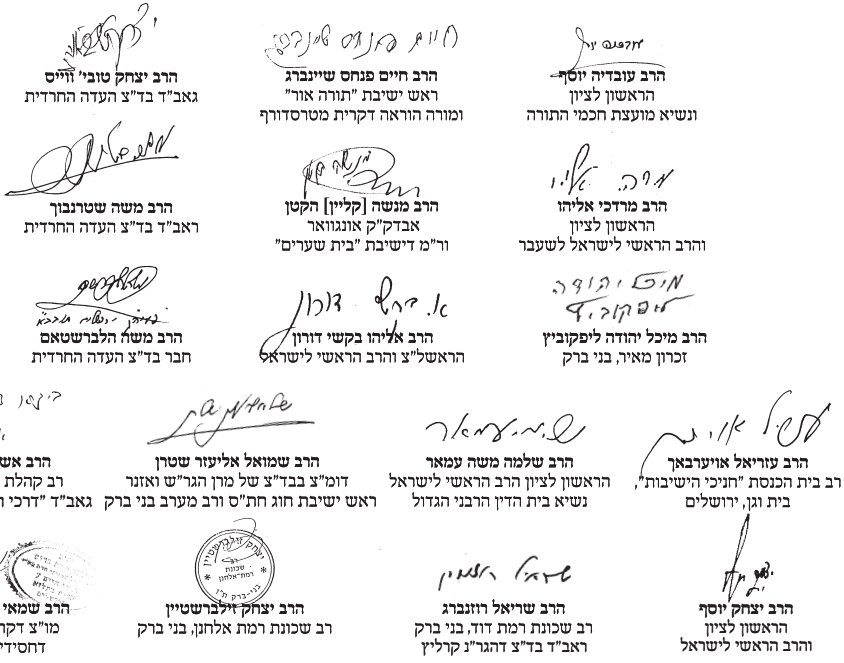 הרב עובדיה יוסף
הראשון לציון
ונשיא מועצת חכמי התורה
חיים פנחס שיינברג
הרב חיים פנחס שיינברג
ראש ישיבת "תורה אור"
ומורה הוראה דקרית מטרסדורף
הרב יצחק טובי' ווייס
גאב"ד בד"צ העדה החרדית
מרדכי אליהו
הרב מרדכי אליהו
הראשון לציון
והרב הראשי לישראל לשעבר
הרב מנשה [קליין] הקטן
אבדק"ק אונגוואר
ור"מ דישיבת "בית שערים"
הרב משה שטרנבוך
ראב"ד בד"צ העדה החרדית
מיכל יהודה
ליפקוביץ
הרב מיכל יהודה ליפקוביץ
זכרון מאיר, בני ברק
א. בקשי דורון
הרב אליהו בקשי דורון
הראשל"צ והרב הראשי לישראל
הרב משה הלברשטאם
חבר בד"צ העדה החרדית
הרב עזריאל אויערבאך
רב בית הכנסת "חניכי הישיבות",
בית וגן, ירושלים
הרב שלמה משה עמאר
הראשון לציון הרב הראשי לישראל
נשיא בית הדין הרבני הגדול
הרב שמואל אליעזר שטרן
דומ"צ בבד"צ של מרן הגר"ש ואזנר
ראש ישיבת חוג חת"ס ורב מערב בני ברק
הרב אש
רב קהלת
גאב"ד "דרכי
הרב יצחק יוסף
הראשון לציון
והרב הראשי לישראל
הרב שריאל רוזנברג
רב שכונת רמת דוד, בני ברק
ראב"ד בד"צ דהגר"נ קרליץ
יצחק זילברשטיין
רב
שכונת
רמת-אלחנן
בני-ברק ת"ו
הרב יצחק זילברשטיין
רב שכונת רמת אלחנן, בני ברק
הרב שמאי
מו"צ דקר
דחסידי